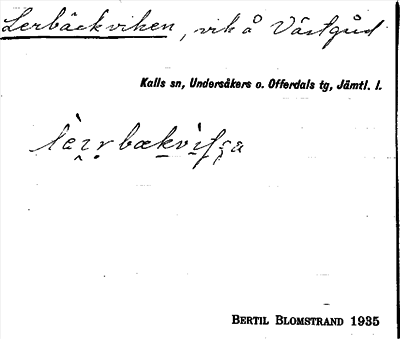 Lerbäckviken, vik å Västgård
Kalls sn, Undersåkers o. Offerdals tg, Jämtl. l.
BERTIL BLOMSTRAND 1935